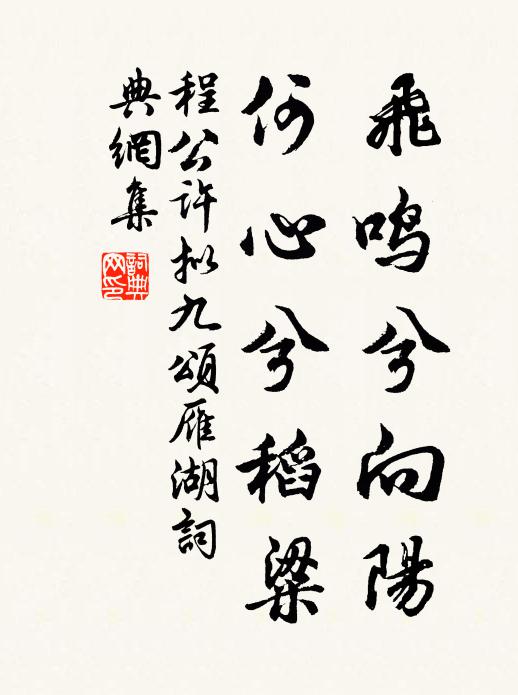 飛鳴兮向陽
何心兮稻粱
程公許拟九頌雁湖詞
典網集
詞典
网印